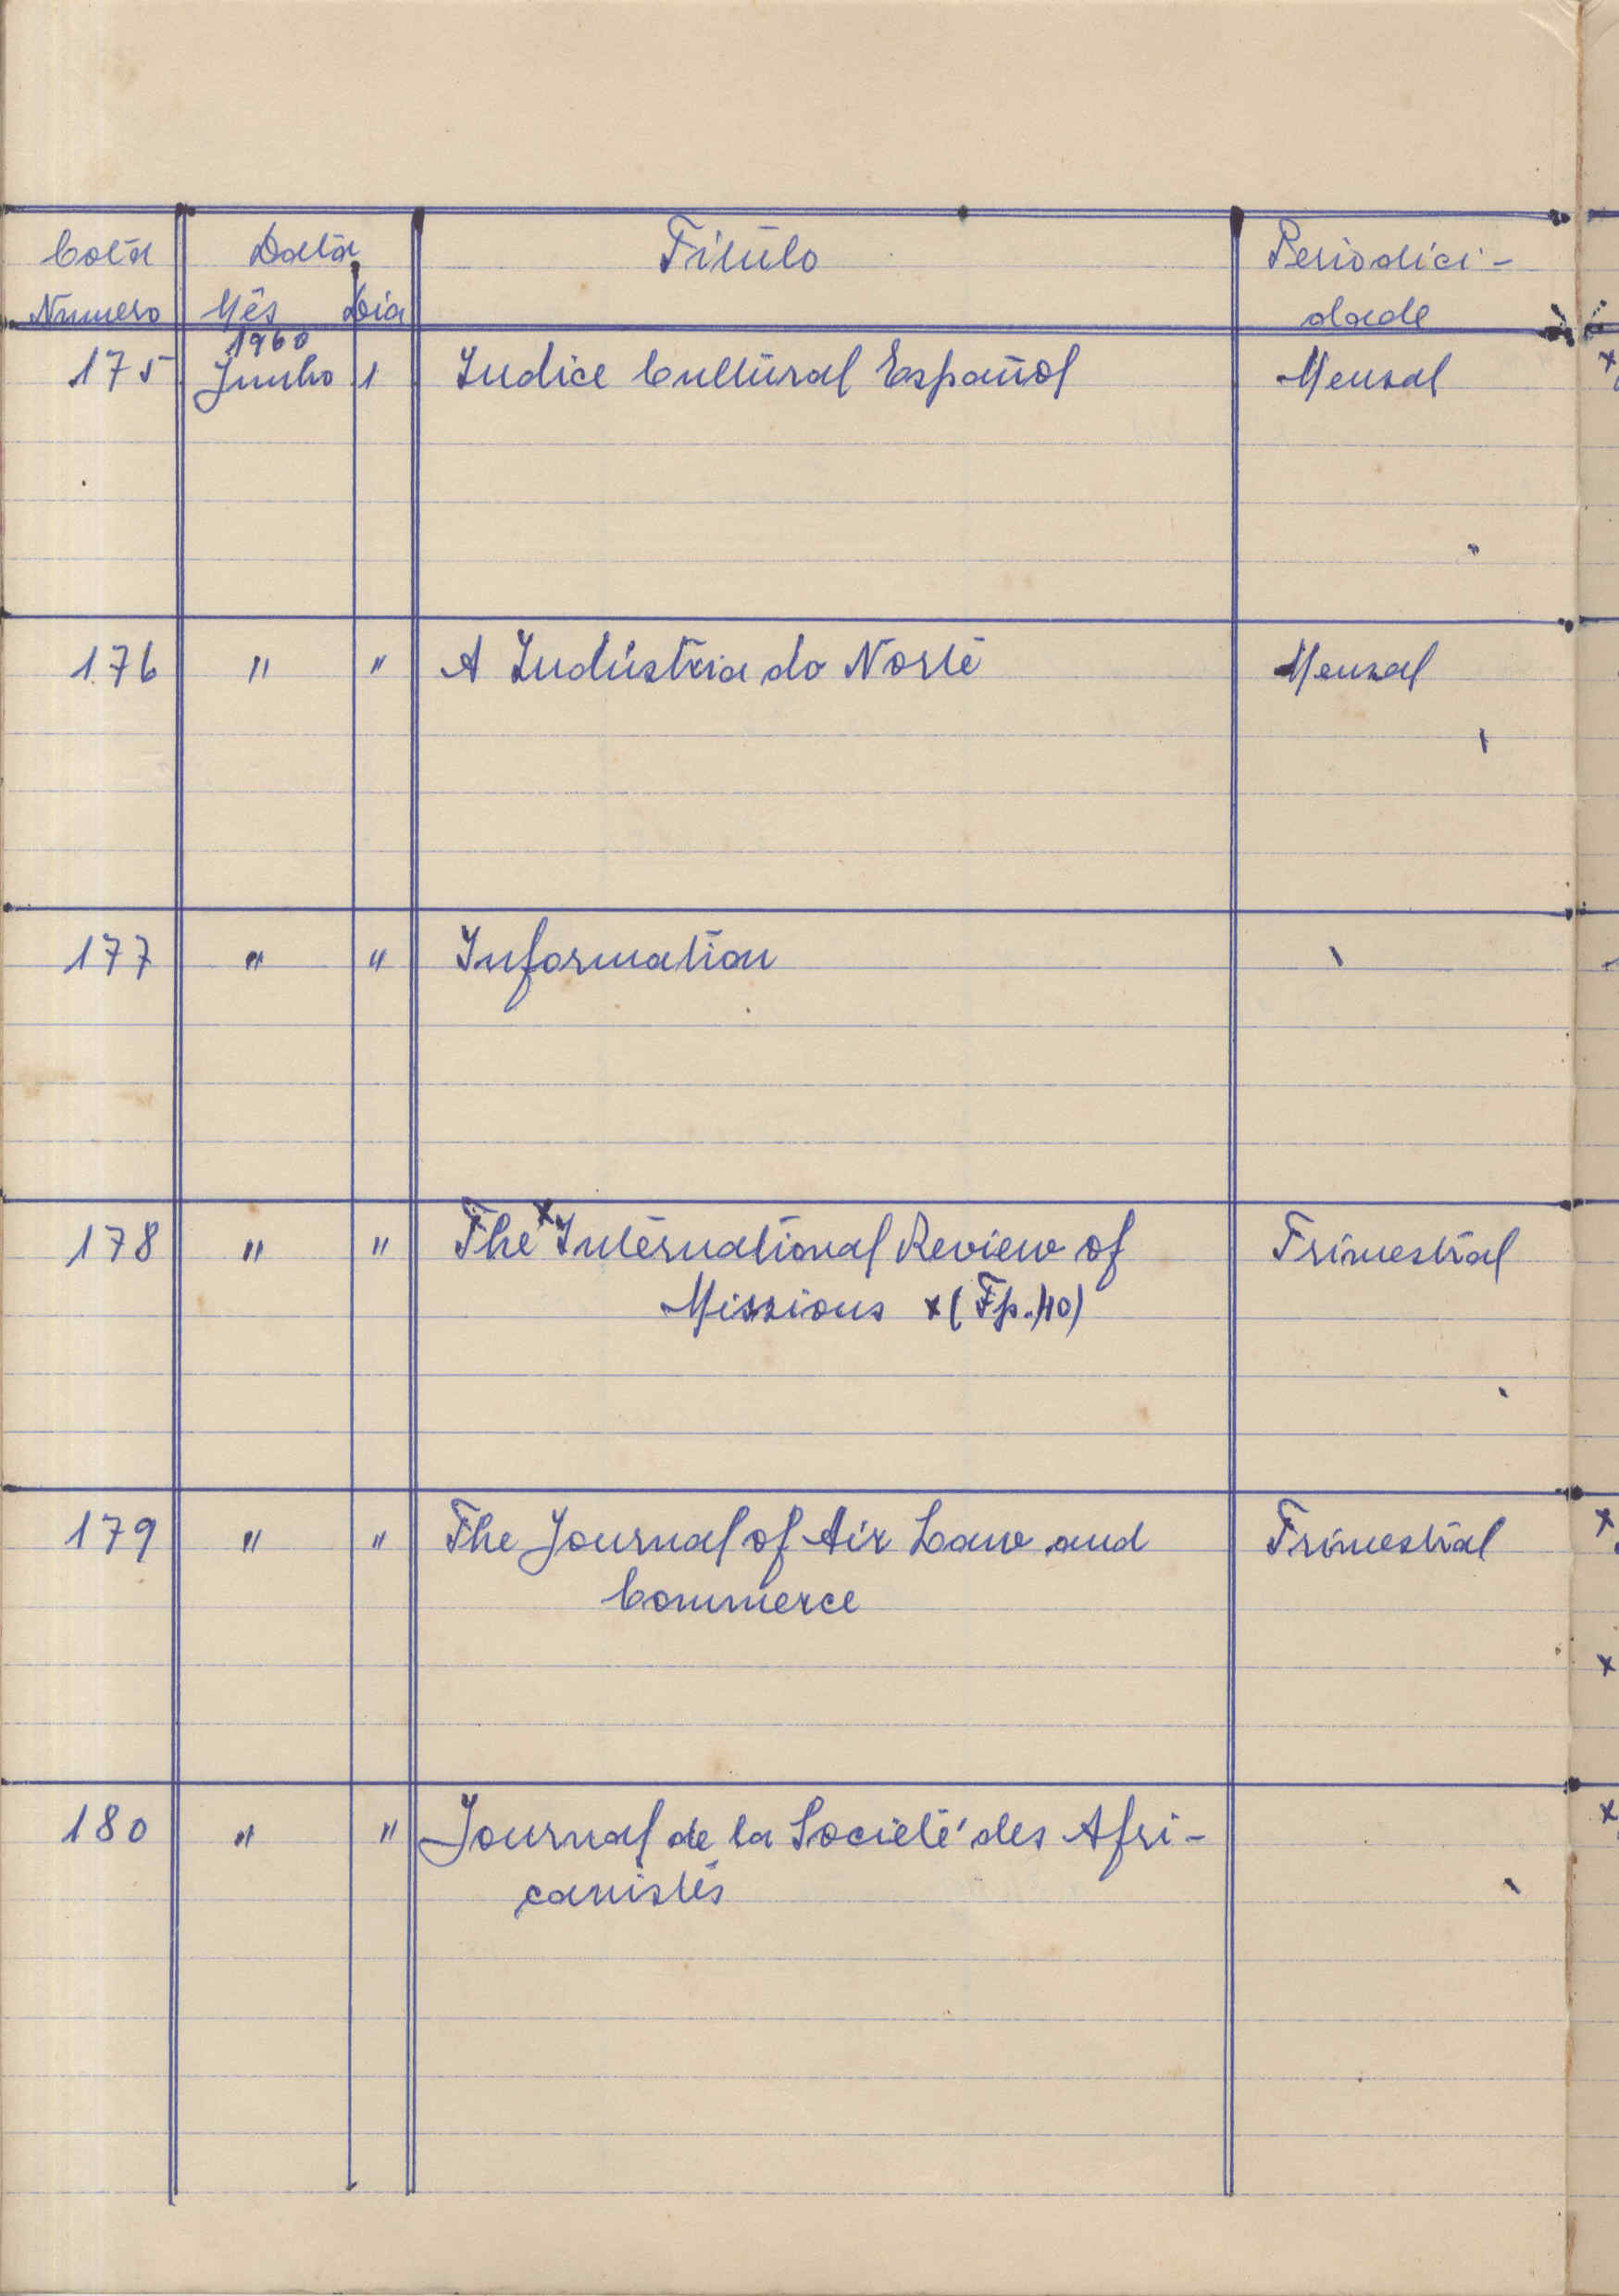 Cota Data Titulo Periodici-
Numero Mês Dia dade
1960
175 Junho 1 Indice Cultural Español Mensal
176 " " A Indústria do Norte Mensal
177 " " Information
178 " " The x International Review of Trimestral
Missions x (Fp. 110)
179 " " The Journal of Air Law and Trimestral
Commerce
180 " " Journal de la Société des Afri-
canistes